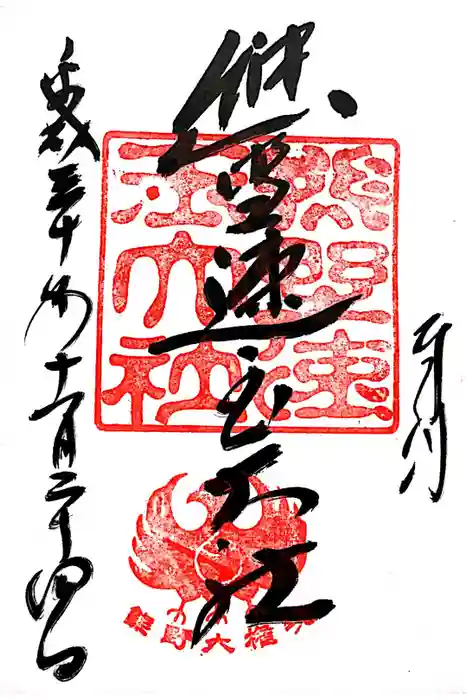 奉拝
熊野速玉大社
平成三十年十一月二十四日
熊野速玉大社
熊野大権現